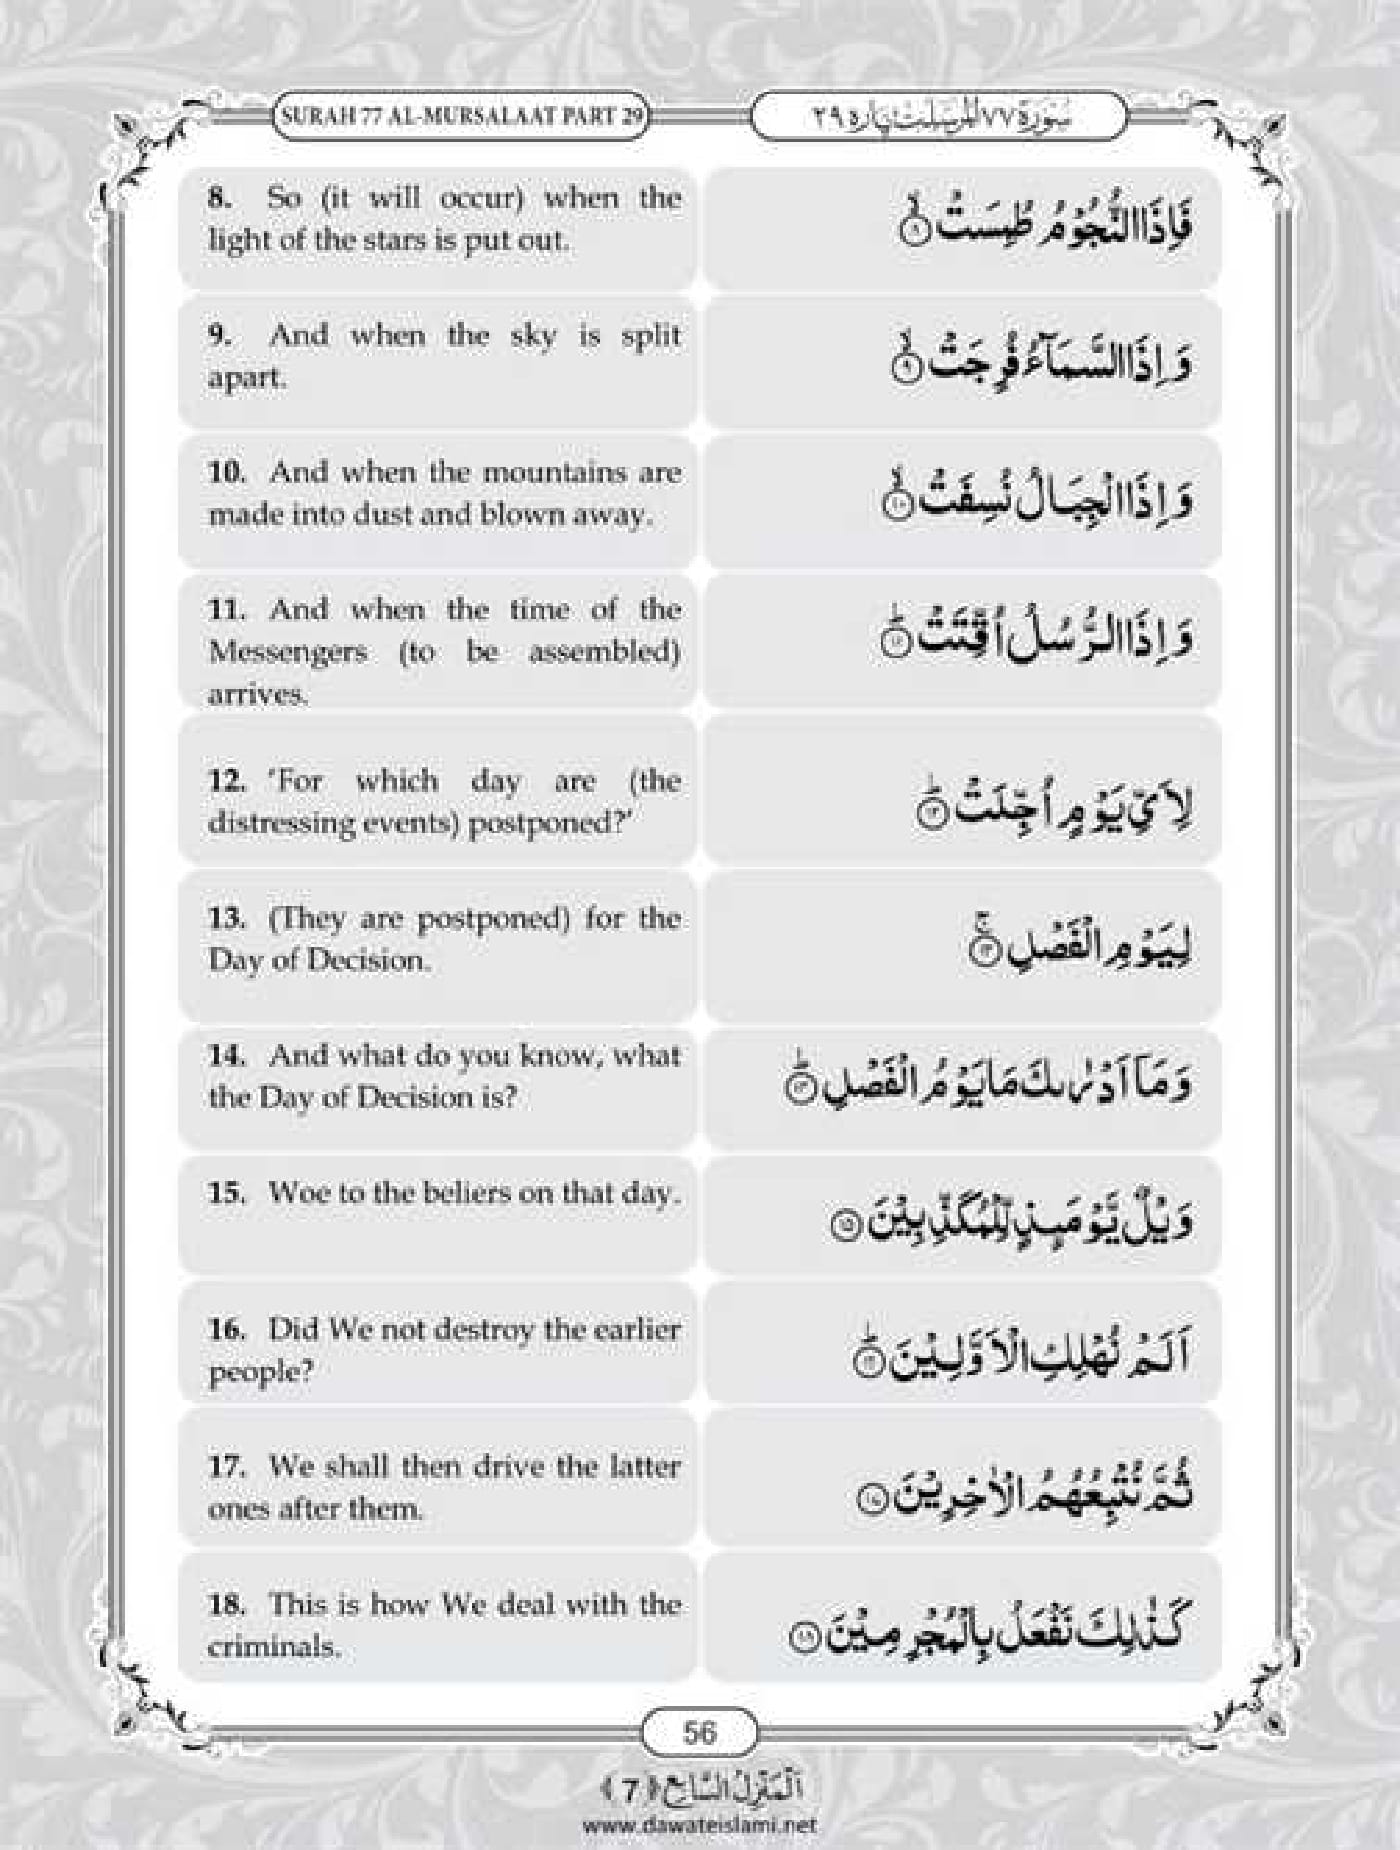 SURAH 77 AL-MURSALAAT PART 29
سُوْرَة ٧٧ المُرسَلٰت پاره ٢٩
8. So (it will occur) when the
light of the stars is put out.
فَاِذَا النُّجُوْمُ طُمِسَتْ ۙ﴿۸﴾
9. And when the sky is split
apart.
وَ اِذَا السَّمَآءُ فُرِجَتْ ۙ﴿۹﴾
10. And when the mountains are
made into dust and blown away.
وَ اِذَا الْجِبَالُ نُسِفَتْ ۙ﴿۱۰﴾
11. And when the time of the
Messengers (to be assembled)
arrives.
وَ اِذَا الرُّسُلُ اُقِّتَتْ ؕ﴿۱۱﴾
12. ‘For which day are (the
distressing events) postponed?’
لِاَیِّ یَوْمٍ اُجِّلَتْ ؕ﴿۱۲﴾
13. (They are postponed) for the
Day of Decision.
لِیَوْمِ الْفَصْلِ ۚ﴿۱۳﴾
14. And what do you know, what
the Day of Decision is?
وَ مَاۤ اَدْرٰىكَ مَا یَوْمُ الْفَصْلِ ؕ﴿۱۴﴾
15. Woe to the beliers on that day.
وَیْلٌ یَّوْمَىٕذٍ لِّلْمُكَذِّبِیْنَ ﴿۱۵﴾
16. Did We not destroy the earlier
people?
اَلَمْ نُهْلِكِ الْاَوَّلِیْنَ ؕ﴿۱۶﴾
17. We shall then drive the latter
ones after them.
ثُمَّ نُتْبِعُهُمُ الْاٰخِرِیْنَ ﴿۱۷﴾
18. This is how We deal with the
criminals.
كَذٰلِكَ نَفْعَلُ بِالْمُجْرِمِیْنَ ﴿۱۸﴾
56
اَلْمَنْزِلُ السَّابِع ﴿7﴾
www.dawateislami.net